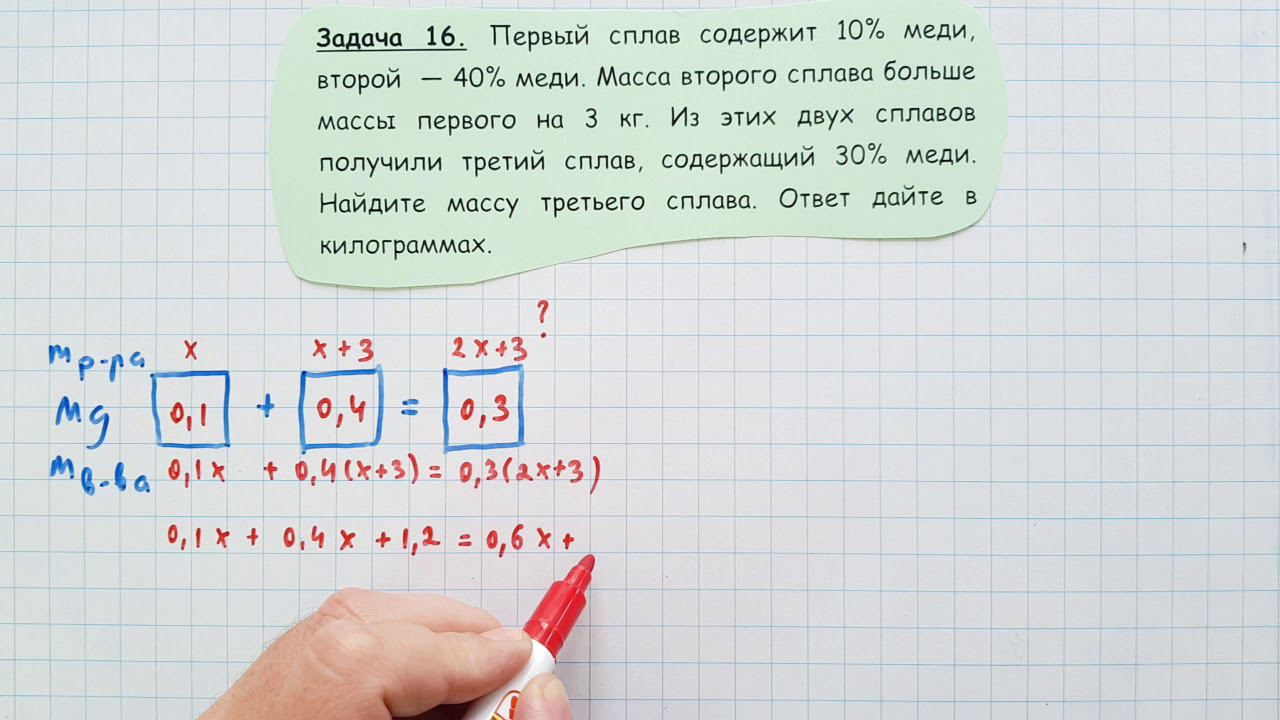 Задача 16. Первый сплав содержит 10% меди,
второй — 40% меди. Масса второго сплава больше
массы первого на 3 кг. Из этих двух сплавов
получили третий сплав, содержащий 30% меди.
Найдите массу третьего сплава. Ответ дайте в
килограммах.
?
mр-ра x x + 3 2x+3
Mg 0,1 + 0,4 = 0,3
mв-ва 0,1x + 0,4(x+3) = 0,3(2x+3)
0,1x + 0,4x + 1,2 = 0,6x +